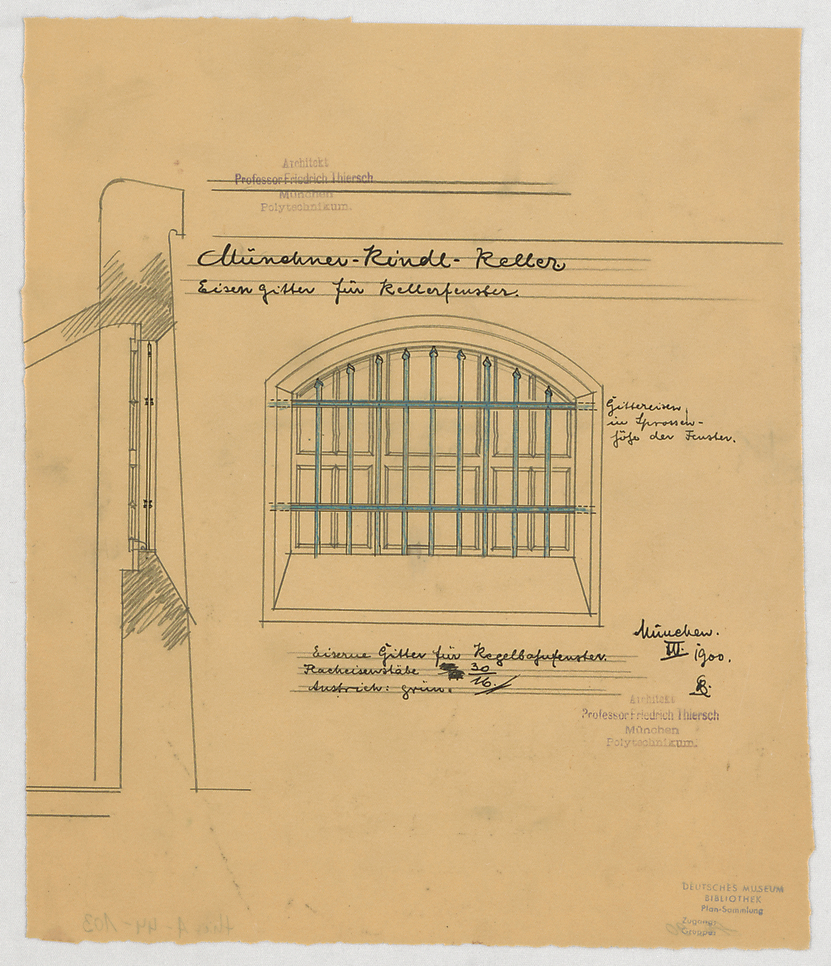 Architekt
Professor Friedrich Thiersch
München
Polytechnikum.
Münchner-Kindl-Keller
Eisengitter für Kellerfenster.
Gittereisen
in Sprossen-
höhe der Fenster.
Eiserne Gitter für Kegelbahnfenster.
Flacheisenstäbe 30
16.
Anstrich: grün.
München.
III. 1900.
Architekt
Professor Friedrich Thiersch
München
Polytechnikum.
DEUTSCHES MUSEUM
BIBLIOTHEK
Plan-Sammlung
Zugang:
Gruppe: